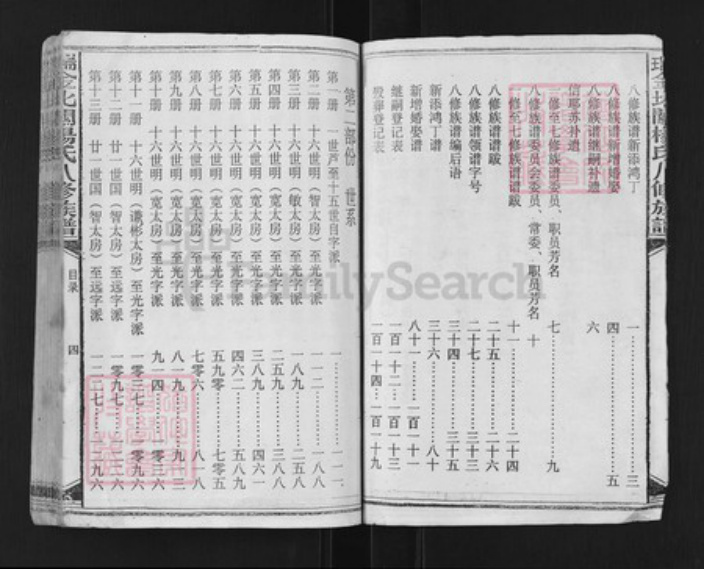 瑞金北關楊氏八修族譜
八修族谱新添鸿丁 一……三
八修族谱新增婚娶 四……五
八修族谱继嗣补遗 六
信耶苏补遗
一修至七修族谱委员、职员芳名 七……九
八修族谱委员会委员、常委、职员芳名 十
一修至七修族谱谱跋 十一……二十四
八修族谱谱跋 二十五……二十六
八修族谱领谱字号 二十七……三十三
八修族谱编后语 三十四……三十五
新添鸿丁谱 三十六……八十
新增婚娶谱 八十一……一百一十一
继嗣登记表 一百一十二…一百一十三
殁葬登记表 一百一十四…一百一十九
第二部份 世系
第一册 一世芦至十五世自字派 一……一一二
第二册 十六世明（智太房）至光字派 一一二……一八八
第三册 十六世明（敏太房）至光字派 一八九……二五八
第四册 十六世明（宽太房）至光字派 二五九……三八八
第五册 十六世明（宽太房）至光字派 三八九……四六一
第六册 十六世明（宽太房）至光字派 四六二……五八九
第七册 十六世明（宽太房）至光字派 五九零……七零五
第八册 十六世明（宽太房）至光字派 七零六……八一八
第九册 十六世明（宽太房）至光字派 八一九……九一三
第十册 十六世明（宽太房）至光字派 九一四……一零三六
第十一册 十六世明（谦彬太房）至光字派 一零三七…一零九六
第十二册 廿一世国（智太房）至远字派 一零九七
第十三册 廿一世国（智太房）至远字派
瑞金北關楊氏八修族譜
目录
四
FamilySearch